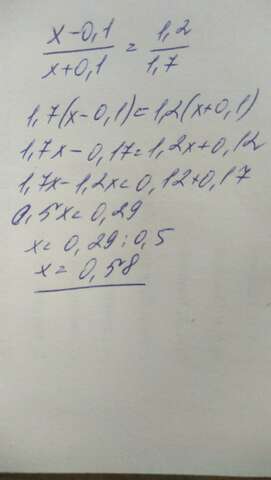 x-0,1 / x+0,1 = 1,2 / 1,7
1,7(x-0,1)=1,2(x+0,1)
1,7x-0,17=1,2x+0,12
1,7x-1,2x=0,12+0,17
0,5x=0,29
x=0,29:0,5
x=0,58